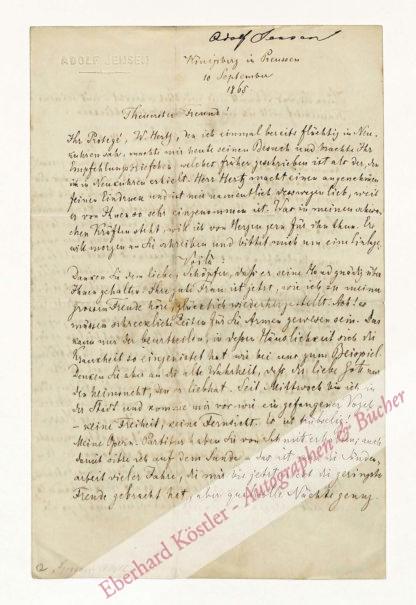 Adolf Jensen
ADOLF JENSEN
Königsberg in Preussen
10 September
1865
Theuerster Freund!
Ihr Protegé, W. Hertz, den ich einmal bereits flüchtig in Neu-
kuhren sah, machte mir heute seinen Besuch und brachte Ihr
Empfehlungsbriefchen, welcher früher geschrieben ist als der, den
ich in Neukuhren erhielt. Herr Hertz macht einen angenehmen
feinen Eindruck und ist mir namentlich deswegen lieb, weil
er von Ihnen so sehr eingenommen ist. Was in meinen schwa-
chen Kräften steht, will ich von Herzen gern für ihn thun. Er
will morgen an Sie schreiben und bittet mich um eine Einlage.
Voilà!
Danken Sie dem lieben Schöpfer, daß er seine Hand gnädig über
Ihnen gehalten! Ihre gute Frau ist jetzt, wie ich zu meiner
grossen Freude höre, glücklich wiederhergestellt. Ach! es
müssen schreckliche Zeiten für Sie Armen gewesen sein. Das
kann nur der beurtheilen, in dessen Häuslichkeit sich die
Krankheit so eingenistet hat wie bei uns zum Beispiel.
Denken Sie aber an die alte Wahrheit, daß der liebe Gott nur
den heimsucht, den er lieb hat. Seit Mittwoch bin ich in
der Stadt und komme mir vor wie ein gefangener Vogel
– keine Freiheit, keine Fernsicht. Es ist trübselig.
Meine Opern-Partitur haben Sie von
damit sitze ich auf dem Sande
arbeit vieler Jahre, die mir bis jetzt nicht die geringste
Freude gebracht hat, aber qualvolle Nächte genug
Eberhard Köstler - Autographen & Bücher